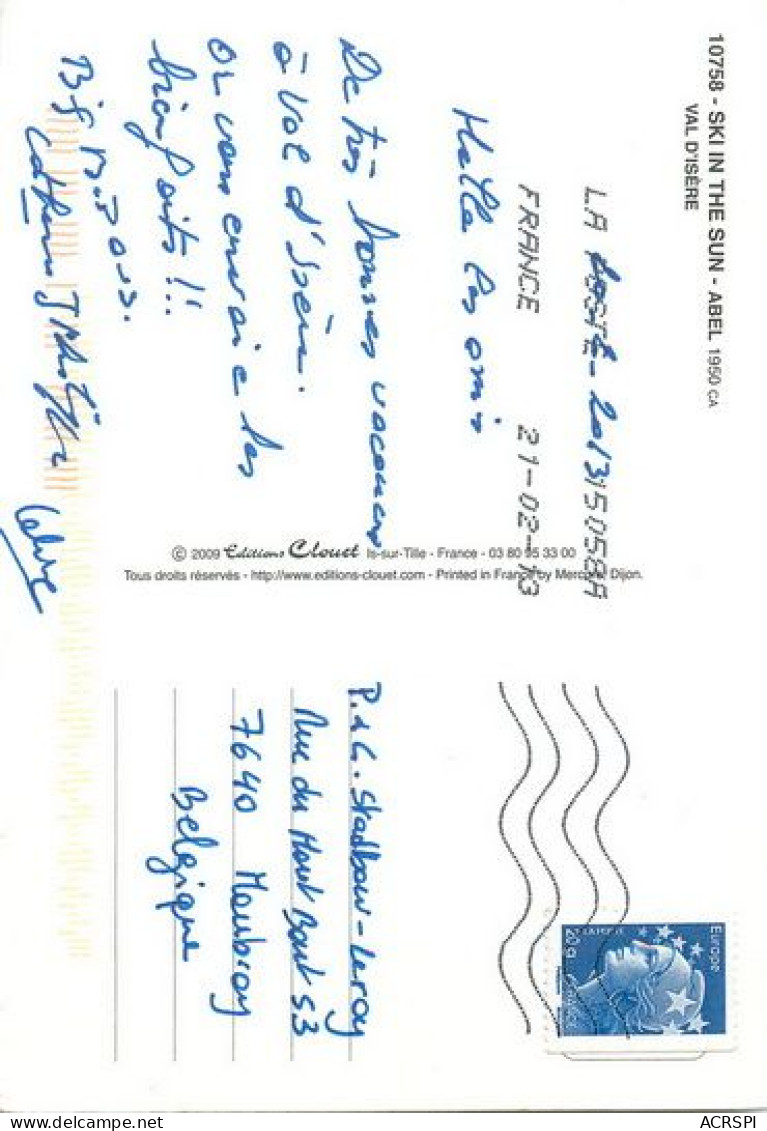 10758 - SKI IN THE SUN - ABEL 1950 CA
VAL D'ISÈRE
LA POSTE 15058A
FRANCE 21-02-13
2013
Hello les amis
De très bonnes vacances
à Val d'Isère.
On vous envoie les
bienfaits!!..
Big Bisous.
© 2009 Editions Clouet Is-sur-Tille - France - 03 80 95 33 00
Tous droits réservés - http://www.editions-clouet.com - Printed in France by Mercure, Dijon.
P. & G. Stadbour-Leroy
Rue du Haut Bout 53
7640 Maubray
Belgique
Europe
20 g
ACRSPI